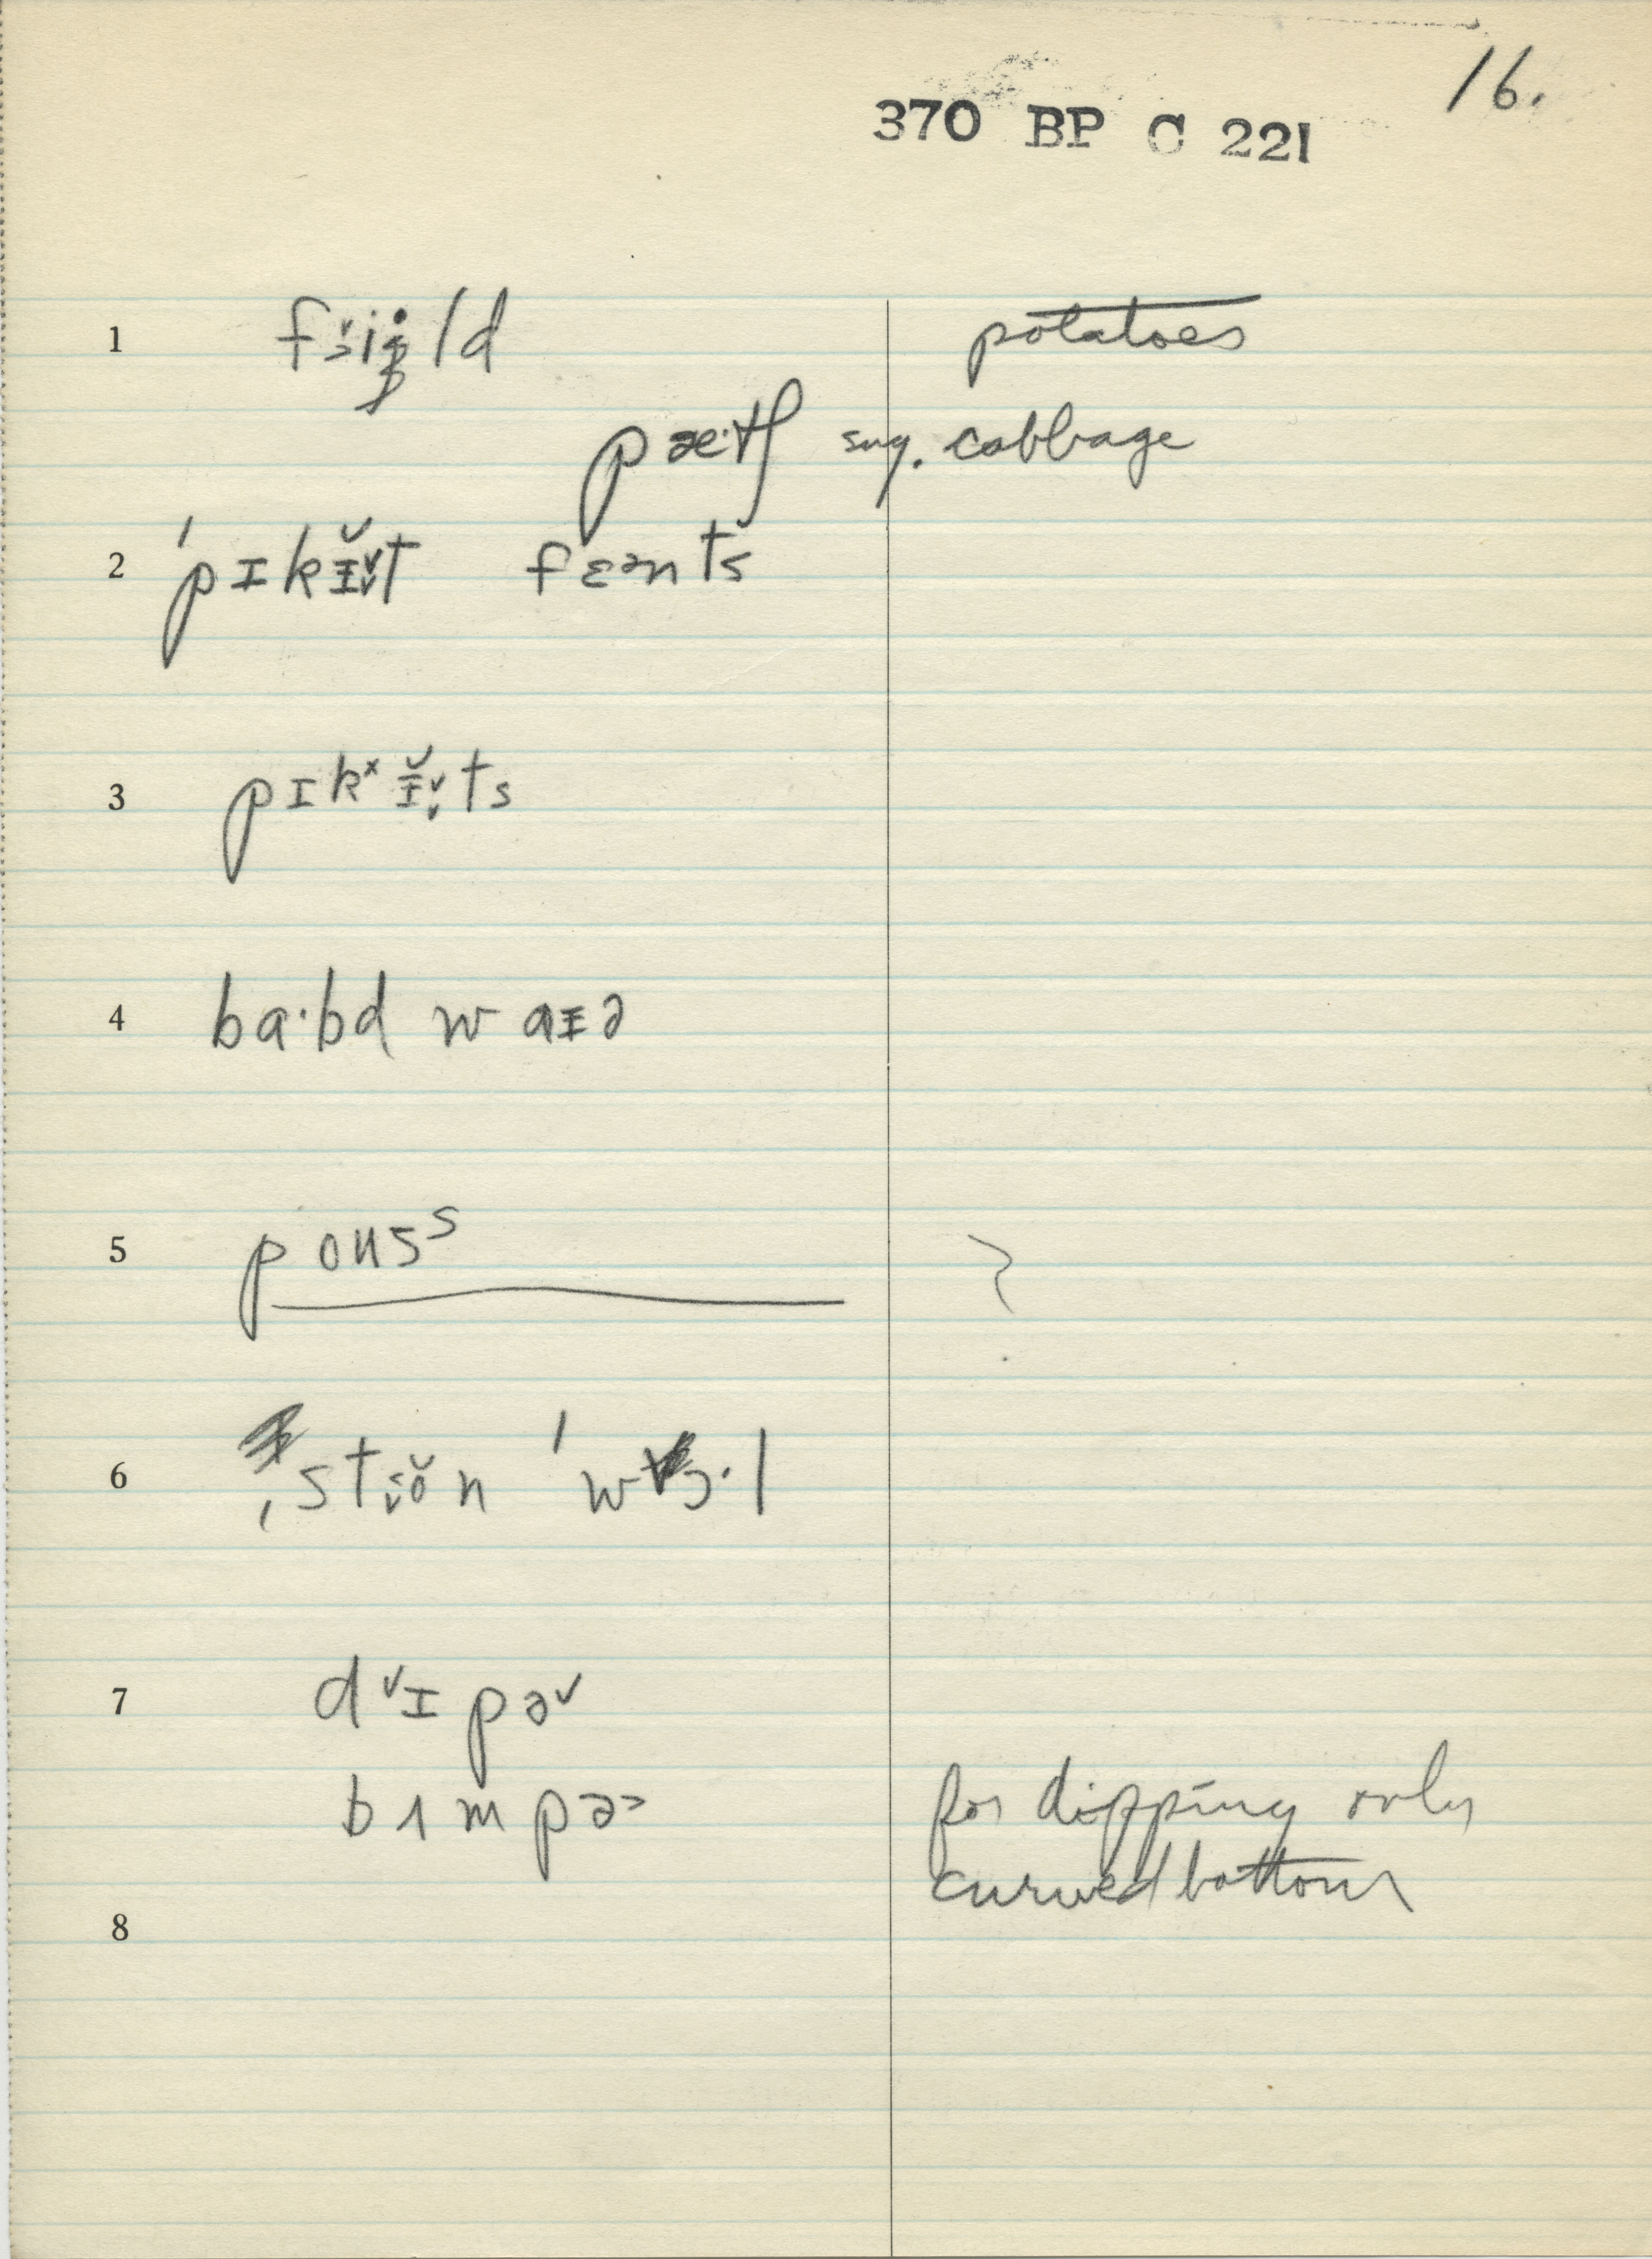 16.
370 BP C 221
1 potatoes
pæ·tʃ sug. cabbage
2 ˈpɪkɪ̆t fɛənts
3 pɪkˣɪ̆ts
4 ba·bd waɪə
5 pousˢ ?
6 ˌstiə̆n ˈwɔ·l
7 d˅ɪpə˅
bɪmpə˃ for dipping only
curved bottom
8